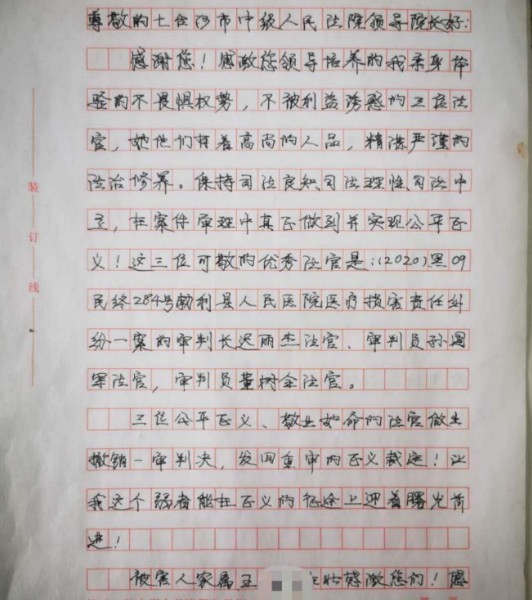 尊敬的七台河市中级人民法院领导院长好:
感谢您!感激您领导培养的我亲身体
验的不畏惧权势,不被利益诱惑的三位法
官,她他们有着高尚的人品,精湛严谨的
法治修养。保持司法良知司法理性司法中
立,在案件审理中真正做到并实现公平正
义!这三位可敬的优秀法官是:(2020)黑09
民终284号勃利县人民医院医疗损害责任纠
纷一案的审判长迟丽杰法官、审判员孙国
军法官,审判员董树全法官。
三位公平正义、敬业如命的法官做出
撤销一审判决,发回重审的正义裁定!让
我这个弱者能在正义的征途上迎着曙光前
进!
被害人家属王 感激您们!感
装
订
线